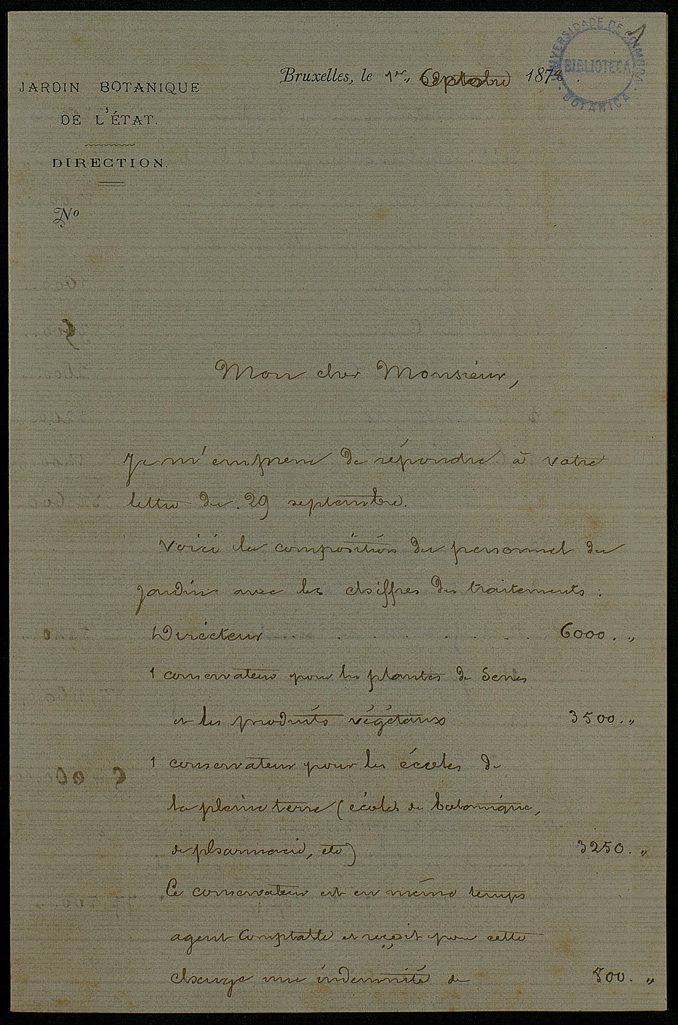 JARDIN BOTANIQUE
DE L'ÉTAT.
DIRECTION.
Nº
Bruxelles, le 1er, 187
UNIVERSIDADE DE COIMBRA
BIBLIOTECA
BOTANICA
Mon cher Monsieur,
Je m'empresse de répondre à votre
lettre du 29 septembre.
Voici la composition du personnel du
jardin avec les chiffres des traitements :
1 Directeur . . . . . . . 6000. "
1 conservateur pour les plantes de serres
et les produits végétaux 3500. "
1 conservateur pour les écoles de
la pleine terre (écoles de botanique,
de pharmacie, etc) 3250. "
Ce conservateur est en même temps
agent comptable et reçoit pour cette
charge une indemnité de 500. "